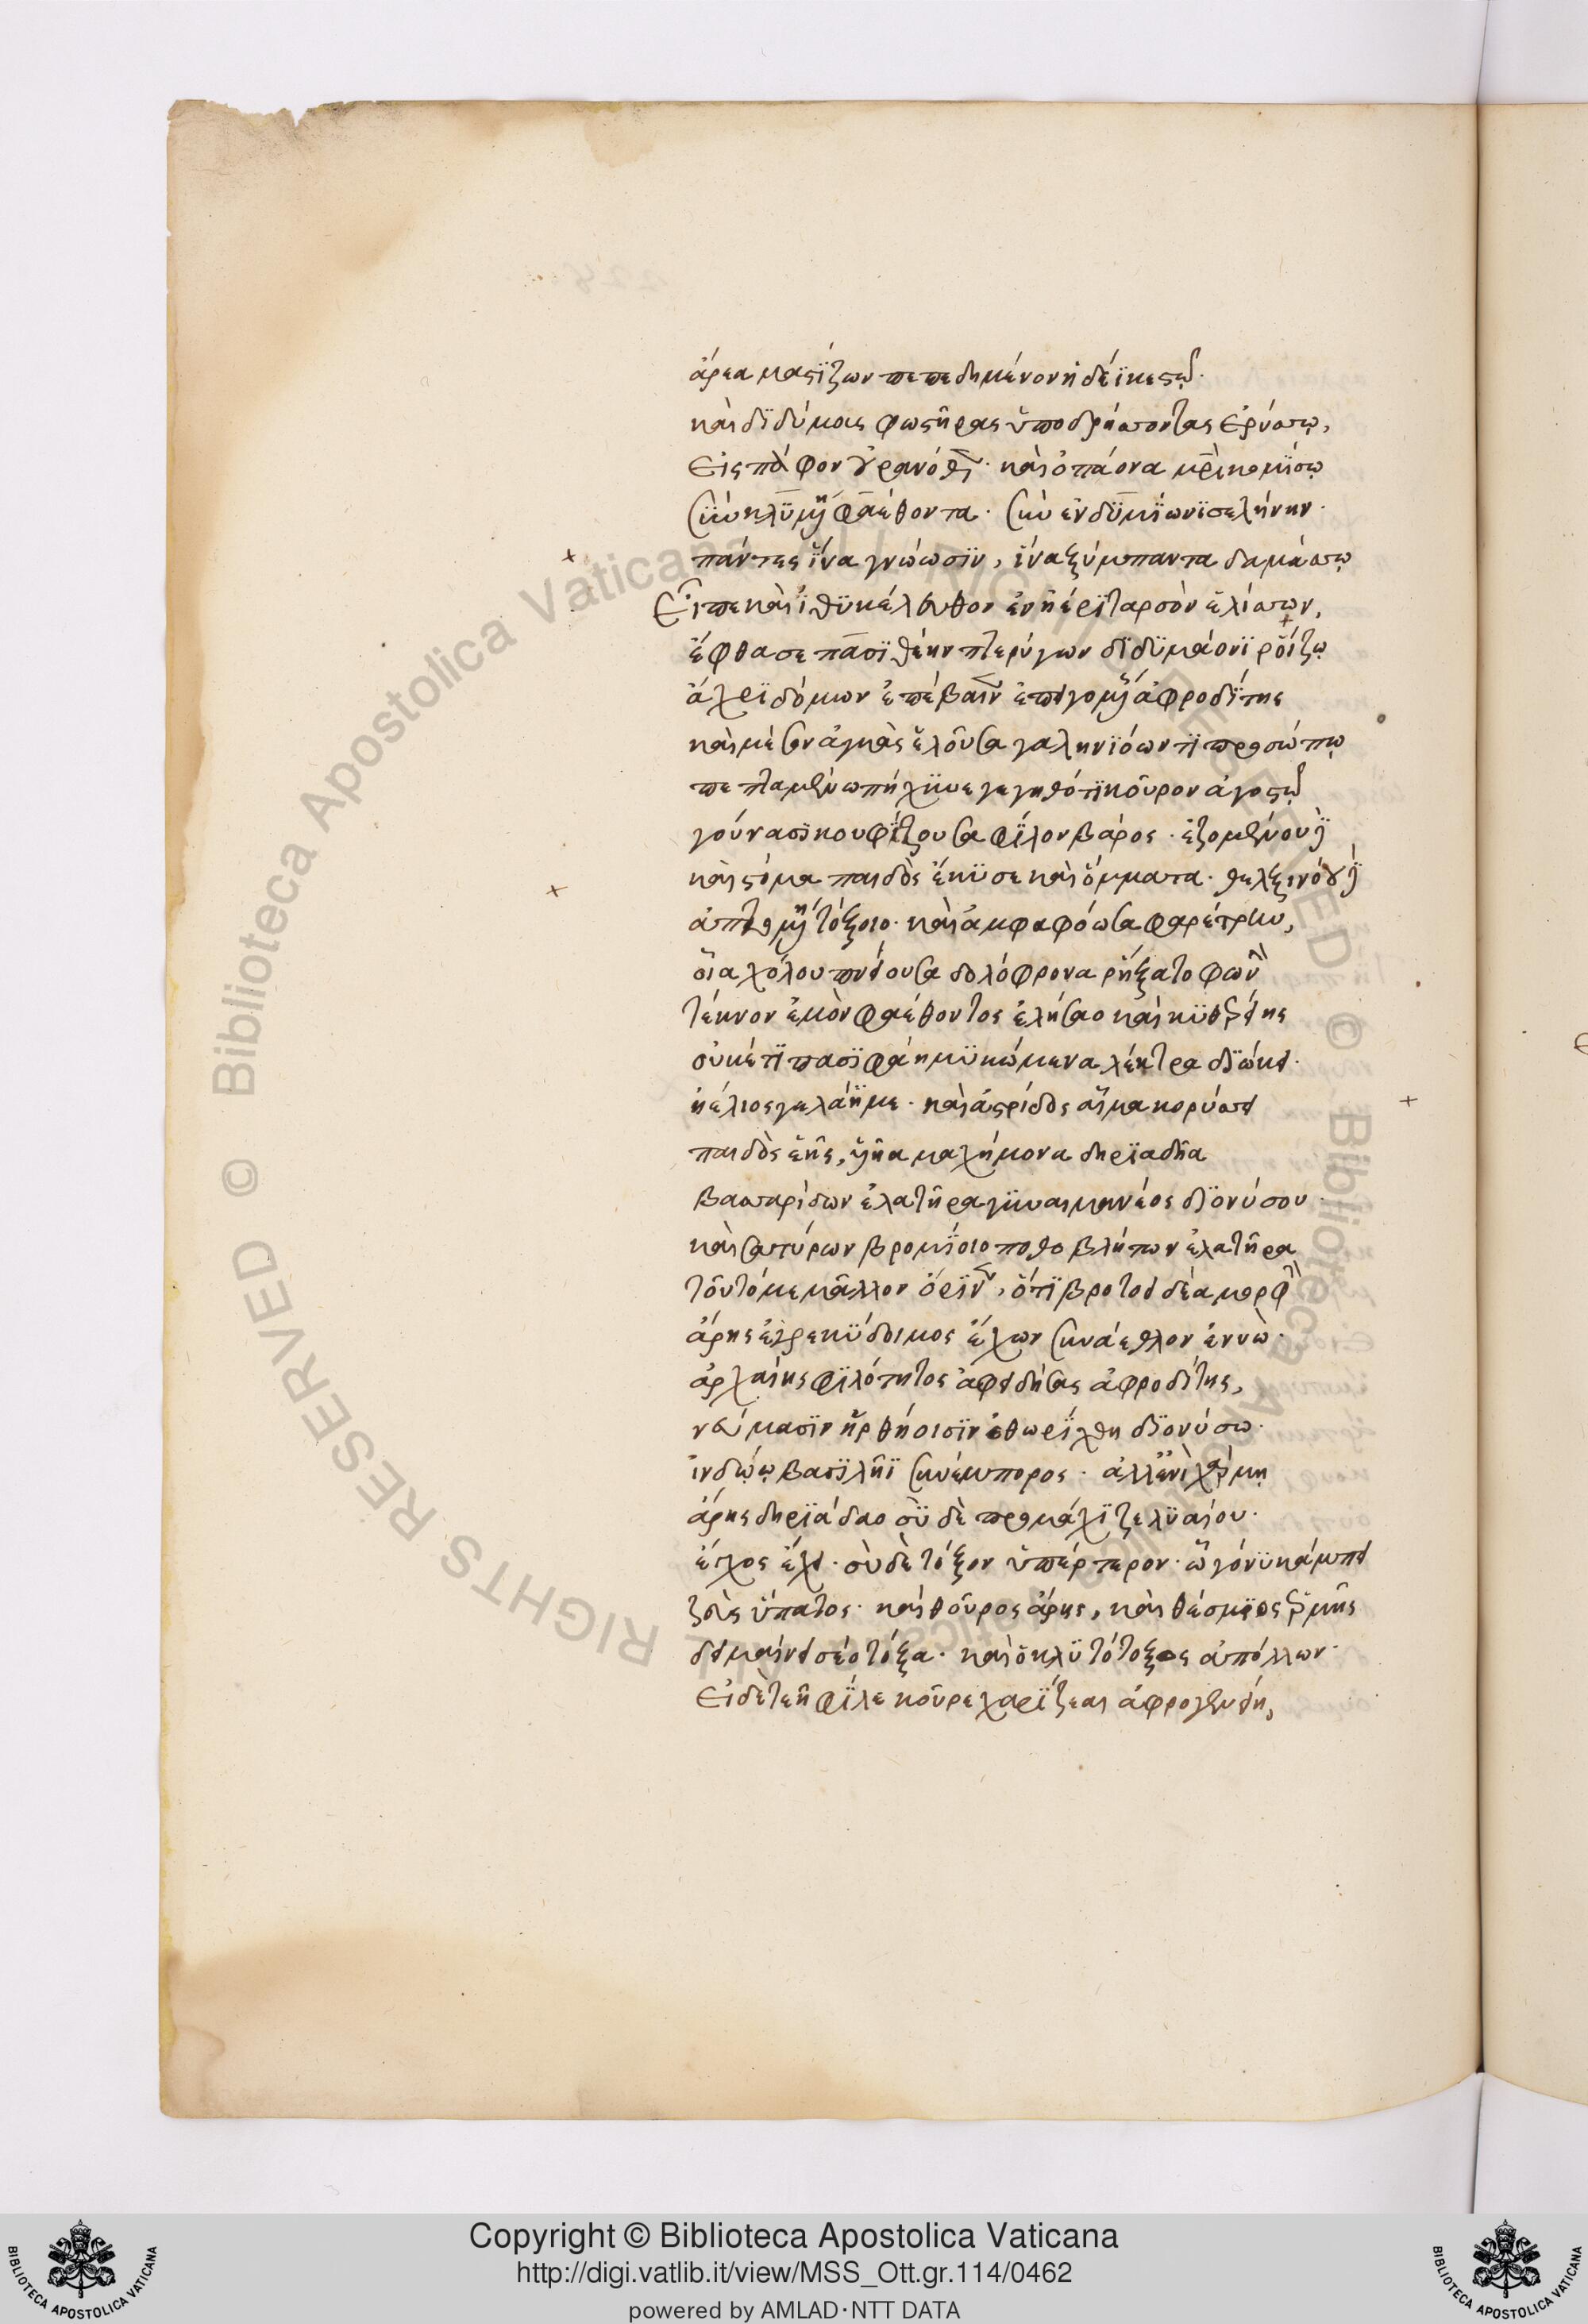 ἄρεα μαστίζων πεπεδημένον ἡδέϊ κεστῷ·
καὶ διδύμους φωστῆρας ὑποδρήσσοντας ἐρύσσω,
εἰς πάφον οὐρανόθεν· καὶ ὀπάονα μητρὶ κομίσσω
σὺν κλυμένῃ φαέθοντα· σὺν ἐνδυμίωνι σελήνην·
πάντες ἵνα γνώωσιν, ἵνα ξύμπαντα δαμάσσω
Εἶπε καὶ ἰθυκέλευθον ἐν ἠέρι ταρσὸν ἑλίσσων,
ἔφθασε πασιθέην πτερύγων διδυμάονι ῥοίζῳ
ἄχρι δόμων ἐπέβαινεν ἐπειγομένης ἀφροδίτης
καί μιν ἐν ἀγκὰς ἑλοῦσα γαληνιόωντι προσώπῳ
πεπταμένῳ πήχυνε γεγηθότι κοῦρον ἀγοστῷ
γούνασι κουφίζουσα φίλον βάρος· ἑζομένου δὲ
καὶ στόμα παιδὸς ἔκυσε καὶ ὄμματα· θελξινόου δὲ
ἁπτομένη τόξοιο· καὶ ἀμφαφόωσα φαρέτρην,
οἷα χόλου πνείουσα δολόφρονα ῥήξατο φωνὴν
τέκνον ἐμὸν φαέθοντος ἐλήσαο καὶ κυθερείης
οὐκέτι πασιφάη μυκώμενα λέκτρα διώκει·
ἠέλιος γελάᾳ με· καὶ ἀστρίδος αἷμα κορύσσει
παιδὸς ἑῆς, υἷα μαχήμονα δηριαδῆα
βασσαρίδων ἐλατῆρα γυναιμανέος διονύσου·
καὶ σατύρων βρομίοιο ποθοβλήτων ἐλατῆρα
τοῦτό με μᾶλλον ὄρινεν, ὅτι βροτοειδέα μορφὴν
ἄρης ἐγρεκύδοιμος ἔχων συνάεθλον ἐννὼ·
ἀρχαίης φιλότητος ἀφειδήσας ἀφροδίτης,
νεύμασιν ἡρθήοισιν ἐθωρήχθη διονύσῳ·
ἰνδῴῳ βασιλῆι συνέμπορος· ἀλλ' ἐνὶ χάρμῃ
ἄρης δηριάδαο σὺ δὲ προμάχιζε λυαίου·
ἔγχος ἔχει· σὺ δὲ τόξον ὑπέρτερον· ᾧ γόνυ κάμπτει
ζεὺς ὕπατος· καὶ θοῦρος ἄρης, καὶ θέσμιος ἑρμῆς
δειμαίνει σέο τόξα· καὶ ὁ κλυτότοξος ἀπόλλων·
εἰ δὲ τεῇ φίλε κοῦρε χαρίζεαι ἀφρογενείῃ,
Copyright © Biblioteca Apostolica Vaticana
http://digi.vatlib.it/view/MSS_Ott.gr.114/0462
powered by AMLAD·NTT DATA